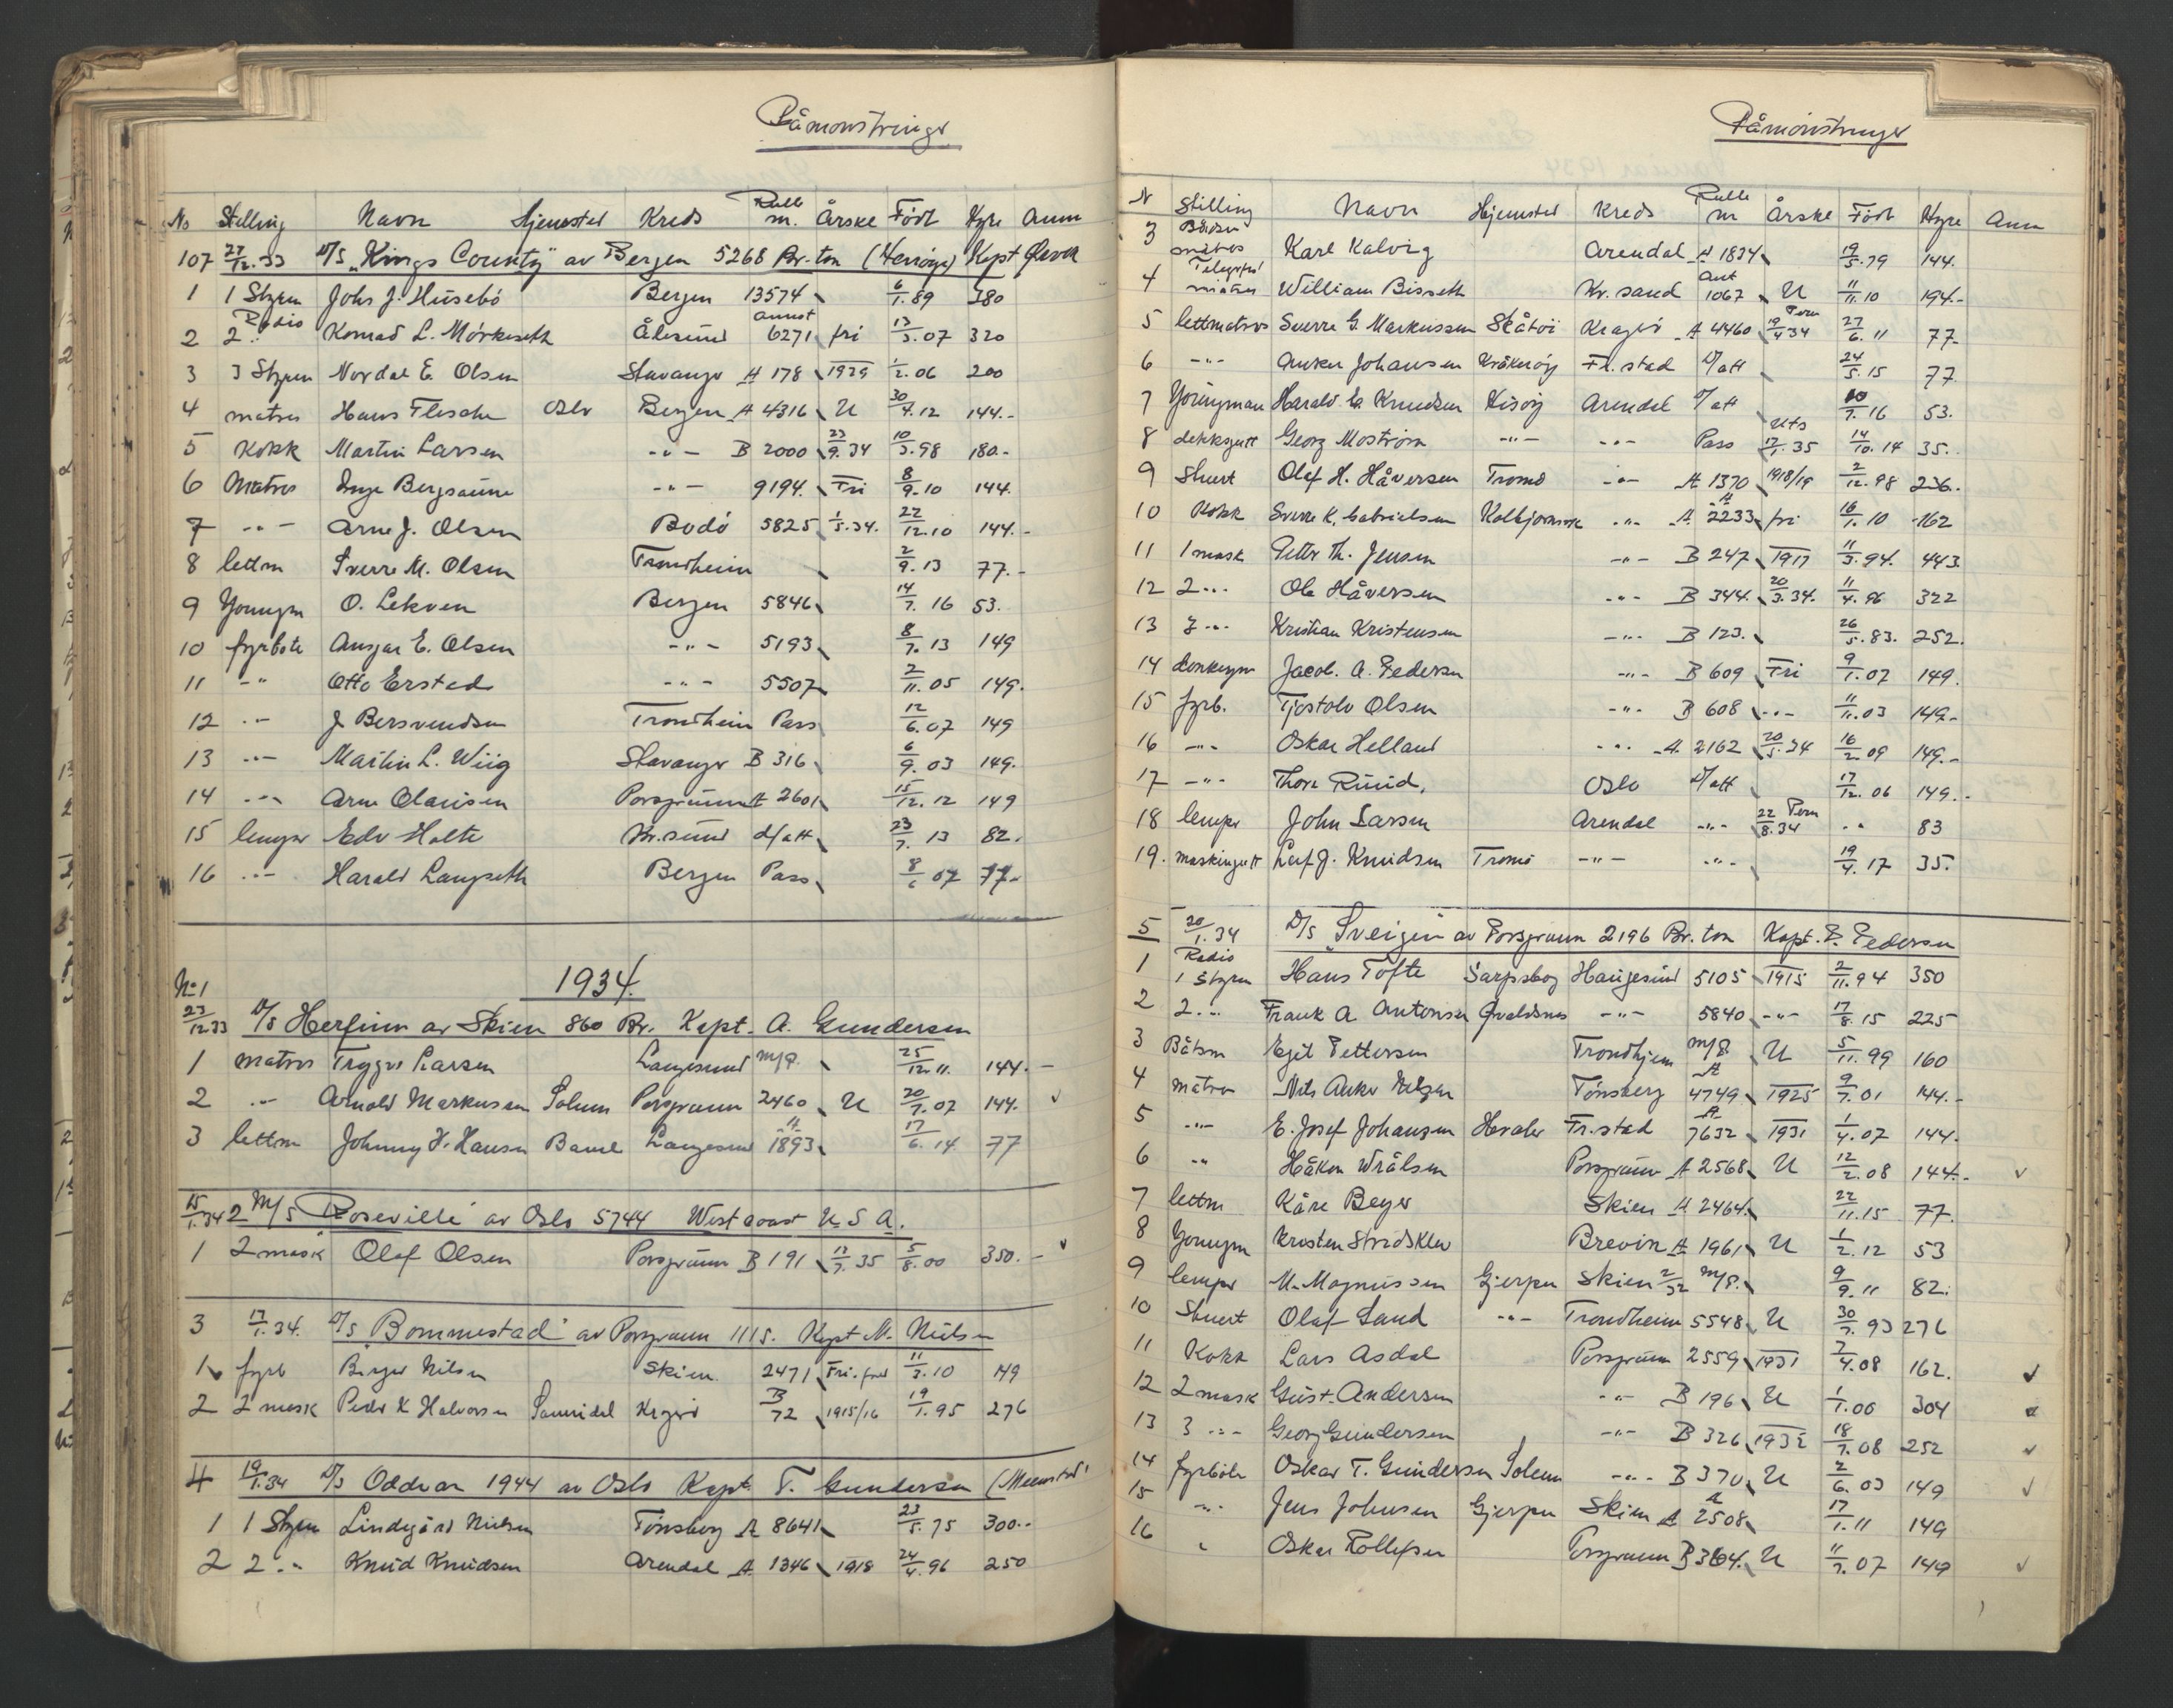 Påmønstringer
No Stilling Navn Hjemsted Kreds Rulle nr. Årskl Født Hyre Anm
107 27/12.33 D/S "Kings County" av Bergen 5268 Br. ton (Herröya) Kapt
1 1 Styrm Johs J. Husebö Bergen 13574 6/1.89 380
2 2 Radio Konrad L. Mörkeseth Ålesund Annot 6271 fri 13/3.07 320
3 3 Styrm Nordal E. Olsen Stavanger A 178 1929 1/2.06 200
4 matros Hans Flesche Oslo Bergen A 4316 U 30/4.12 144.-
5 Kokk Martin Larsen -"- B 2000 23/9.34 10/3.98 180.-
6 Matros Inge Bergsaune -"- 9194. Fri 8/9.10 144.
7 -"- Arne J. Olsen Bodö 5825 1/5.34. 22/12.10 144.-
8 lettm Sverre M. Olsen Trondheim 2/9.13 77.-
9 Youngm O. Lekven Bergen 5846 14/7.16 53.
10 fyrböte Ansgar E. Olsen -"- 5193 8/7.13 149
11 -"- Otto Erstad -"- 5507 2/11.05 149.
12 -"- J Bersvendsen Trondheim Pass 12/6.07 149
13 -"- Martin L. Wiig Stavanger B 316 6/9.03 149.
14 -"- Arne Olausen Porsgrunn A 2601 15/12.12 149
15 lemper Edv Holte Kr.sund d/att 23/7.13 82.
16 -"- Harald Langseth Bergen Pass 8/6 07 77.-
1934.
No 1
23/12.33 D/S Herfinn av Skien 860 Br. Kapt. A. Gundersen
1 matros Trygve Larsen Langesund m/P. 25/12.11. 144.-
2 -"- Arnold Markusen Solum Porsgrunn 2460 U 20/7.07 144.
3 lettm Johnny H. Hansen Bamle Langesund A 1893 17/6.14 77
15/1.34 2 M/S "Roseville" av Oslo 5744 West coast U.S.A.
1 2 mask Olaf Olsen Porsgrunn B 191 13/7.35 5/8.00 350.-
3 17/1.34. D/S "Bommestad" av Porsgrunn 1115. Kapt M. Nielsen
1 fyrb Birger Nilsen Skien. 2471 Fri. 11/3.10 149
2 2 mask Peder K Halvorsen Sannidal Kragerö B 72 1915/16 19/1.95 276
4 19/1.34 D/S Oddvar 1944 av Oslo Kapt. T. Gundersen
1 1 Styrm Lindegård Nielsen Tönsberg A 8641 23/5.75 300.-
2 2 -"- Knud Knudsen Arendal A 1346 1918 24/4.96 250
Påmønstringer
N Stilling Navn Hjemsted Kreds Rulle nr Årskl Født Hyre Anm
3 Båtsm matros Karl Kalvig Arendal A 1834 19/5.79 144.
4 Telegrafist matros William Bisseth Kr. sand Ant 1067 U 11/11.10 194.-
5 lettmatros Sverre G. Markussen Skåtöi Kragerö A 4460 19/4 34 Perm 27/6.11 77.
6 -"- Anker Johansen Kråkeröy Fr. stad D/att 24/5.15 77
7 Youngman Harald E. Knudsen Hisöy Arendal D/att 10/7.16 53.
8 dekksgutt Georg Moström -"- -"- Pass Uts 17/1.35 14/10.14 35.
9 Stuert Olaf H. Håversen Tromö -"- A 1370 1918/19 2/12.98 236.-
10 Kokk Sverre K. Gabrielsen Kolbjörnsvik -"- A 2233 fri 16/1.10 162
11 1 mask Petter Th. Jensen -"- B 247 1917 11/3.94. 443
12 2 -"- Ole Håversen -"- B 344. 20/3.34. 11/4.96 322
13 3 -"- Kristian Kristensen -"- B 123. 26/5.83. 252.
14 donkeym Jacob. A. Pedersen -"- B 609 Fri 9/1.07 149.
15 fyrb. Tjostolv Olsen -"- B 608 -"- 11/11.03 149.-
16 -"- Oskar Helland -"- A 2162 20/5.34 16/2.09 149.-
17 -"- Thore Ruud, Oslo D/att 17/12.06 149.-
18 lemper John Larsen Arendal -"- 22/8.34 Perm -"- 83
19. maskingutt Leif J. Knudsen Tromö -"- -"- 19/4.17 35.
5 20/1.34 D/S "Sveigen" av Porsgrunn 2196 Br. ton Kapt. P. Pedersen
1 Radio 1 Styrm Hans Tofte Sarpsborg Haugesund 5105 1915 2/11.94 350
2 2 -"- Frank A Antonsen Qvaldsnes -"- 5840 -"- 17/8.15 225
3 Båtsm Egil Pettersen Trondhjem m/P U 5/11.99 160
4 matros Nils Anker Nilsen Tönsberg A 4749 1925 9/7.01 144.-
5 -"- E. Josef Johansen Hvaler Fr.stad A 7632 1931 1/4.07 144.
6 -"- Håkon Wrålsen Porsgrunn A 2568 U 12/2.08 144.-
7 lettm Kåre Beyer Skien A 2464 22/11.15 77.
8 Youngm Kristen Stridsklev Brevik A 1961 U 1/2.12 53
9 lemper M. Magnussen Gjerpen Skien 2/32 m/P. 9/9.11 82.
10 Stuert Olaf Sand -"- Trondheim 5548 U 30/7.93 276
11 Kokk Lars Asdal Porsgrunn 2559 1931 7/4.08 162.
12 2 mask Gust. Andersen -"- B 196 U 1/1.00 304
13 3 -"- Georg Gundersen -"- B 326 1932 18/7.08 252
14 fyrböte Oskar T. Gundersen Solum -"- B 370 U 2/6.03 149
15 -"- Jens Johnsen Gjerpen Skien A 2508 17/1.11 149
16 " Oskar Rollefsen Porsgrunn B 364. U 11/7.07 149